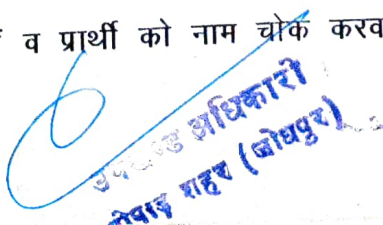 व प्रार्थी को नाम चोक करव
उपखण्ड अधिकारी
शहर (जोधपुर)